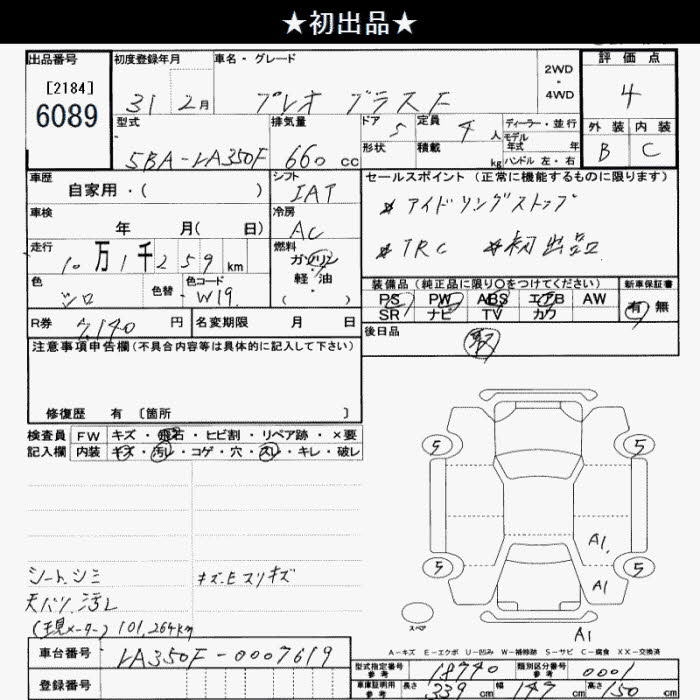 ★初出品★
出品番号
[2184]
6089
初度登録年月
31 2 月
車名・グレード
プレオ プラス F
2WD
・
4WD
評価点
4
外装 内装
B C
型式
5BA-LA350F
排気量
660 cc
ドア 5
定員 4 人
形状
積載 kg
ディーラー・並行
モデル
年式 年
ハンドル 左・右
車歴
自家用・( )
シフト
IAT
車検
年 月( 日)
冷房
AC
走行
10 万 1 千 2 5 9 km
燃料
ガソリン
軽・油
( )
色
シロ
色替
色コード
W19
R券
7,140 円
名変期限 月 日
セールスポイント (正常に機能するものに限ります)
※ アイドリングストップ
※ TRC ※ 初出品
装備品 (純正品に限り○をつけてください)
新車保証書
PS PW ABS エアB AW
有 無
SR ナビ TV カワ
後日品
取
注意事項申告欄 (不具合内容等は具体的に記入して下さい)
修復歴 有 〔箇所 〕
検査員 FW キズ・飛石・ヒビ割・リペア跡・×要
記入欄 内装 キズ・汚レ・コゲ・穴・スレ・キレ・破レ
シート、シミ キズ、Eスリキズ
天バリ、汚レ
(現メーター) 101,264km
5 5
A1
5 5
A1
スペア
A1
A-キズ E-エクボ U-凹み W-補修跡 S-サビ C-腐食 XX-交換済
車台番号 LA350F-0007619
登録番号
型式指定番号 参考 18740 類別区分番号 参考 0001
車庫証明用 参考 長さ 339 cm 幅 147 cm 高さ 150 cm